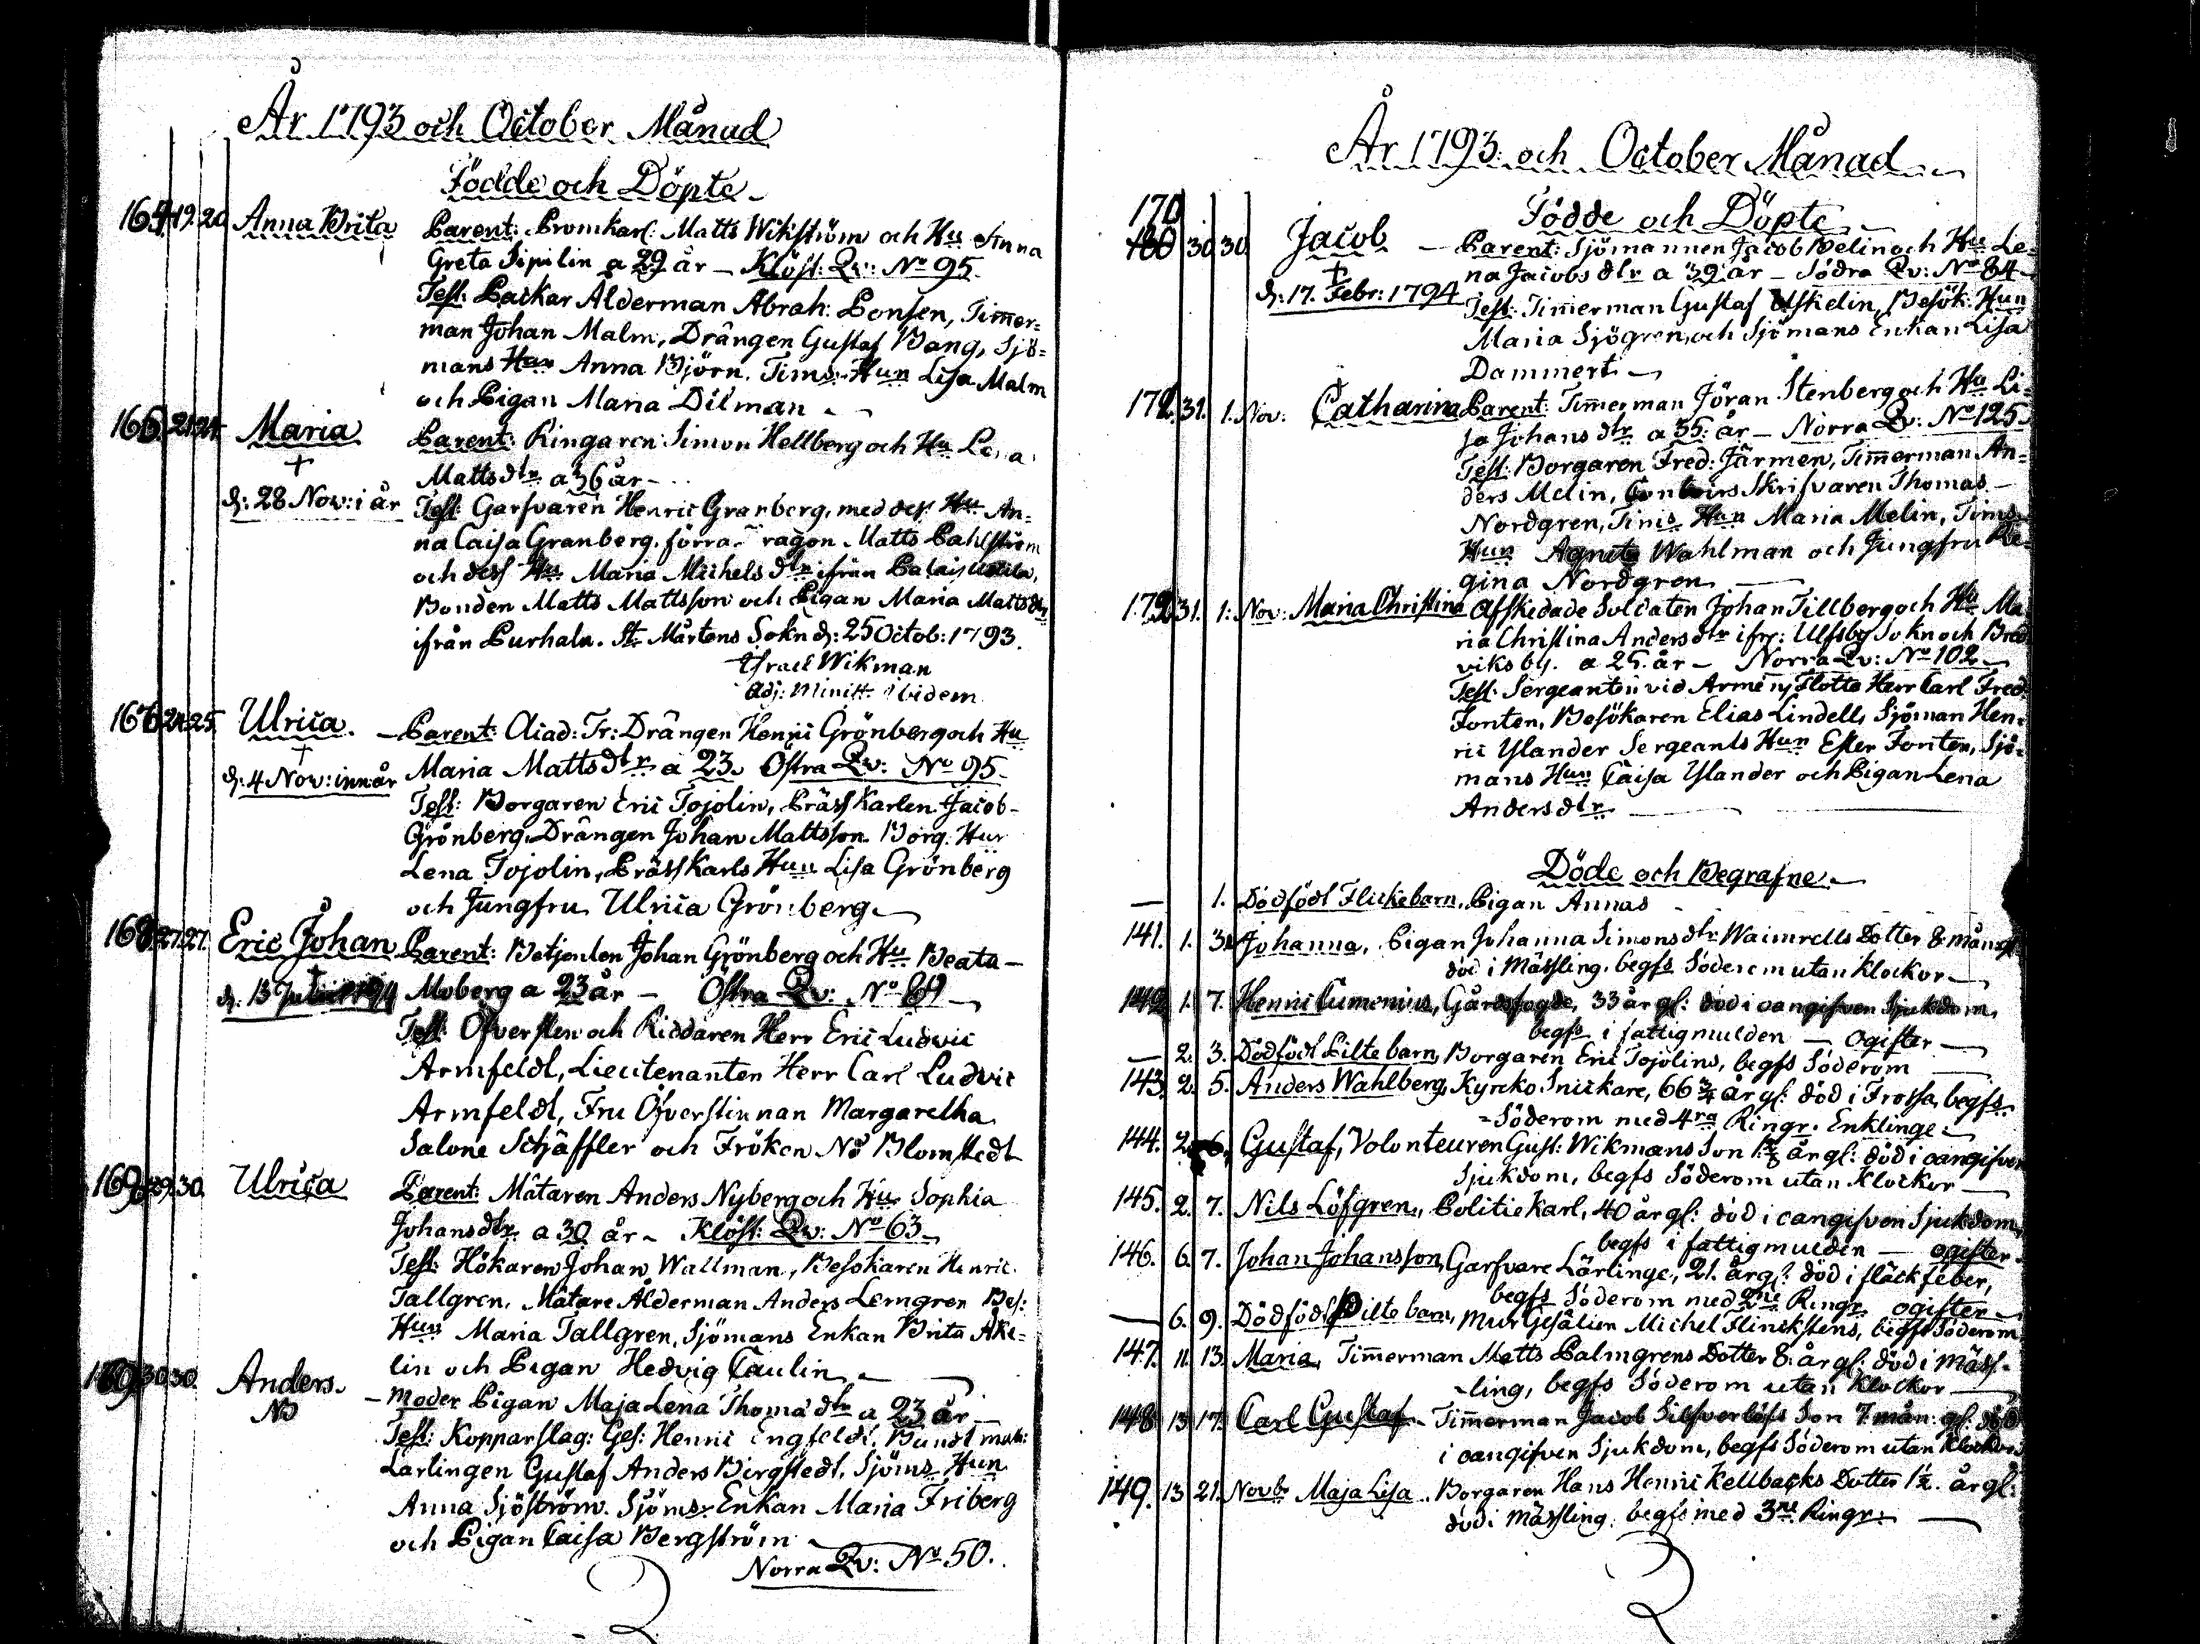 År 1793 och October Månad
Födde och Döpte
19. 20. Anna Brita Parent: Bromkarl: Matts Wikström och Hu Anna
Greta Sipilin a 29 år — Klöst: Qv: No 95.
Test: Packar Alderman Abrah: Ponsen, Tim̅er=
man Johan Malm, Drängen Gustaf Bang, Sjö=
mans Hun Anna Björn. Tims. Hun Lisa Malm
och Pigan Maria Dilman
Maria Parent: Ringaren Simon Hellberg och Hu Lena
Matts dtr a 36 år —
d: 28 Nov: i år Test: Garfvaren Henric Granberg, med des Hu An=
na Caisa Granberg, förra Matts Pahlström
och dess Hu Maria Michels dtr ifrån
Bonden Matts Mattsson och Pigan Maria Matts dtr
ifrån Purhala. St Mårtens Sokn d: 25 Octob: 1793.
Israel Wikman
Adj: Minist: ibidem
Ulrica. — Parent: Acad: Tr: Drängen Henric Grönberg och Hu
d: 4 Nov: innår Maria Matts dtr a 23. Östra Qv: No 95.
Test: Borgaren Eric Tojolin, Präss Karlen Jacob
Grönberg, Drängen Johan Mattsson. Borg. Hun
Lena Tojolin, Präss Karls Hun Lisa Grönberg
och Jungfru Ulrica Grönberg
168. 27. 27. Eric Johan Parent: Betjenten Johan Grönberg och Hu Beata —
d: 13 Moberg a 23 år — Östra Qv: No 69
Test: Öfversten och Riddaren Herr Eric Ludvic
Armfeldt, Lieutenanten Herr Carl Ludvic
Armfeldt, Fru Öfverstinnan Margaretha
Salone Schäffler och Fröken No Blomstedt
169. 29. 30. Ulrica Parent: Mätaren Anders Nyberg och Hu Sophia
Johans dtr a 30 år — Klöst: Qv: No 63
Test: Hökaren Johan Wallman, Besökaren Henric
Tallgren, Mätare Ålderman Anders Lemgren Bes:
Hun Maria Tallgren, Sjömans Enkan Brita Ake=
lin och Pigan Hedvig Caulin
30. 30. Anders. — Moder Pigan Maja Lena Thomæ dtr a 23 år
No Test: Kopparslag: Ges: Henric Engfeldt, Buntmak:
Lärlingen Gustaf Anders Bergstedt, Sjöms Hun
Anna Sjöström. Sjöms Enkan Maria Friberg
och Pigan Caisa Bergström
Norra Qv: No 50.
År 1793 och October Månad
Födde och Döpte
170 30. 30. Jacob — Parent: Sjömannen Jacob Velin och Hu Le=
na Jacobs dtr a 39 år — Södra Qv: No 84
d: 17. Febr: 1794 Test: Tim̅erman Gustaf Besök: Hun
Maria Sjögren, och Sjömans Enkan Lisa
Dammert
31. 1. Nov: Catharina Parent: Tim̅erman Jöran Stenberg och Hu Li=
sa Johans dtr a 35 år — Norra Qv: No 125.
Test: Borgaren Fred: Järmen, Tim̅erman An=
ders Melin, Contoirs Skrifvaren Thomas
Nordgren, Tims Hun Maria Melin, Tims
Hun Agneta Wahlman och Jungfru Re=
gina Nordgren
172. 31. 1: Nov: Maria Christina Afskedade Soldaten Johan Tillberg och Hu Ma
ria Christina Anders dtr ifr: Ulfsby Sokn och
viks by. a 25 år — Norra Qv: No 102
Test: Sergeanten vid Armens Flotta Herr Carl Fred:
Forsten, Besökaren Elias Lindell, Sjöman Hen=
ric Ylander Sergeants Hun Ester Forsten, Sjö=
mans Hun Caisa Ylander och Pigan Lena
Anders dtr
Döde och Begrafne
— 1. Dödfödt Flickebarn, Pigan Annas
141. 1. 3. Johanna, Pigan Johanna Simons dtr Dotter 8 mån gl:
död i Mässling, begfs Söderom utan Klockor
142. 1. 7. Henric Cumenius, Gårdsfogde, 33 år gl: död i oangifven Sjukdom,
begfs i fattigmulden — Ogifter
— 2. 3. Dödfödt Pilte barn, Borgaren Eric Tojolins, begfs Söderom
143. 2. 5. Anders Wahlberg, Kyrcko Snickare, 66 3/4 år gl: död i Frossa, begfs
Söderom med 4ra Ringr. Enklinge
144. 2. 6. Gustaf, Volonteuren Gust: Wikmans Son år gl: död i oangifven
Sjukdom, begfs Söderom utan Klockor
145. 2. 7. Nils Löfgren, Politie Karl, 40 år gl: död i oangifven Sjukdom,
begfs i fattigmulden — ogifter
146. 6. 7. Johan Johansson, Garfvare Lärlinge, 21. år gl: död i fläckfeber,
begfs Söderom med 2ne Ringr. ogifter
— 6. 9. Dödfödt Pilte barn, Mur Gesällen Michel Flinckstens, begfs Söderom
147. 11. 13. Maria, Tim̅erman Matts Palmgrens Dotter 8. år gl: död i Mäss=
ling, begfs Söderom utan Klockor
148. 13. 17. Carl Gustaf Tim̅erman Jacob Silfverlöfs Son 7. mån: gl: död
i oangifven Sjukdom, begfs Söderom utan Klockor
149. 13. 21. Novbr Maja Lisa. Borgaren Hans Henric Kellbacks Dotter 1½. år gl:
död i Mässling. begfs med 3ne Ringr.